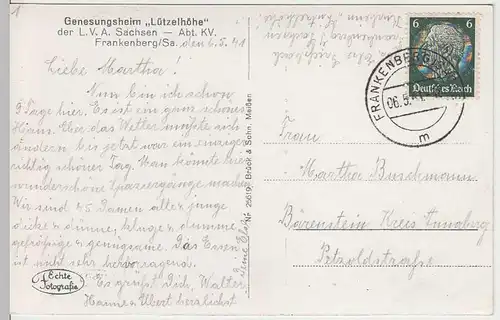 Genesungsheim „Lützelhöhe"
der L.V.A. Sachsen — Abt. KV.
Frankenberg/Sa. den 6.5.41
Liebe Martha!
Nun bin ich schon
9 Tage hier. Es ist ein ganz schönes
Haus. Aber das Wetter müßte sich
ändern. Bis jetzt war ein einziger
richtig schöner Tag. Man könnte hier
wunderschöne Spaziergänge machen
Wir sind 45 Damen alte u. junge
dicke u. dünne, kluge u. dumme,
gefräßige u. genügsame. Das Essen
ist nicht sehr hervorragend.
Es grüßt Dich, Walter,
Hanne u. Albert herzlichst
Deine
Echte
Fotografie
Nr. 25619 Brück & Sohn, Meißen
6 6
Deutsches Reich
FRANKENBERG
06.5.41
m
Frau
Martha Buschmann
Bärenstein Kreis Annaberg
Petzoldstraße